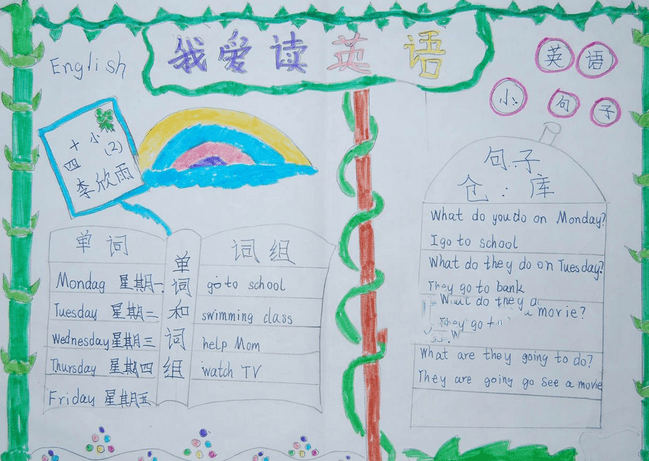 我爱读英语
English
英语
小句子
十小
四(2)
李欣雨
单词
Mondag 星期一
Tuesday 星期二
Wednesday 星期三
Thursday 星期四
Friday 星期五
单词和词组
词组
go to school
swimming class
help Mom
watch TV
句子
仓:库
What do you do on Monday?
I go to school
What do they do on Tuesday?
They go to bank
What do they a
a movie?
They go to
What are they going to do?
They are going go see a movie